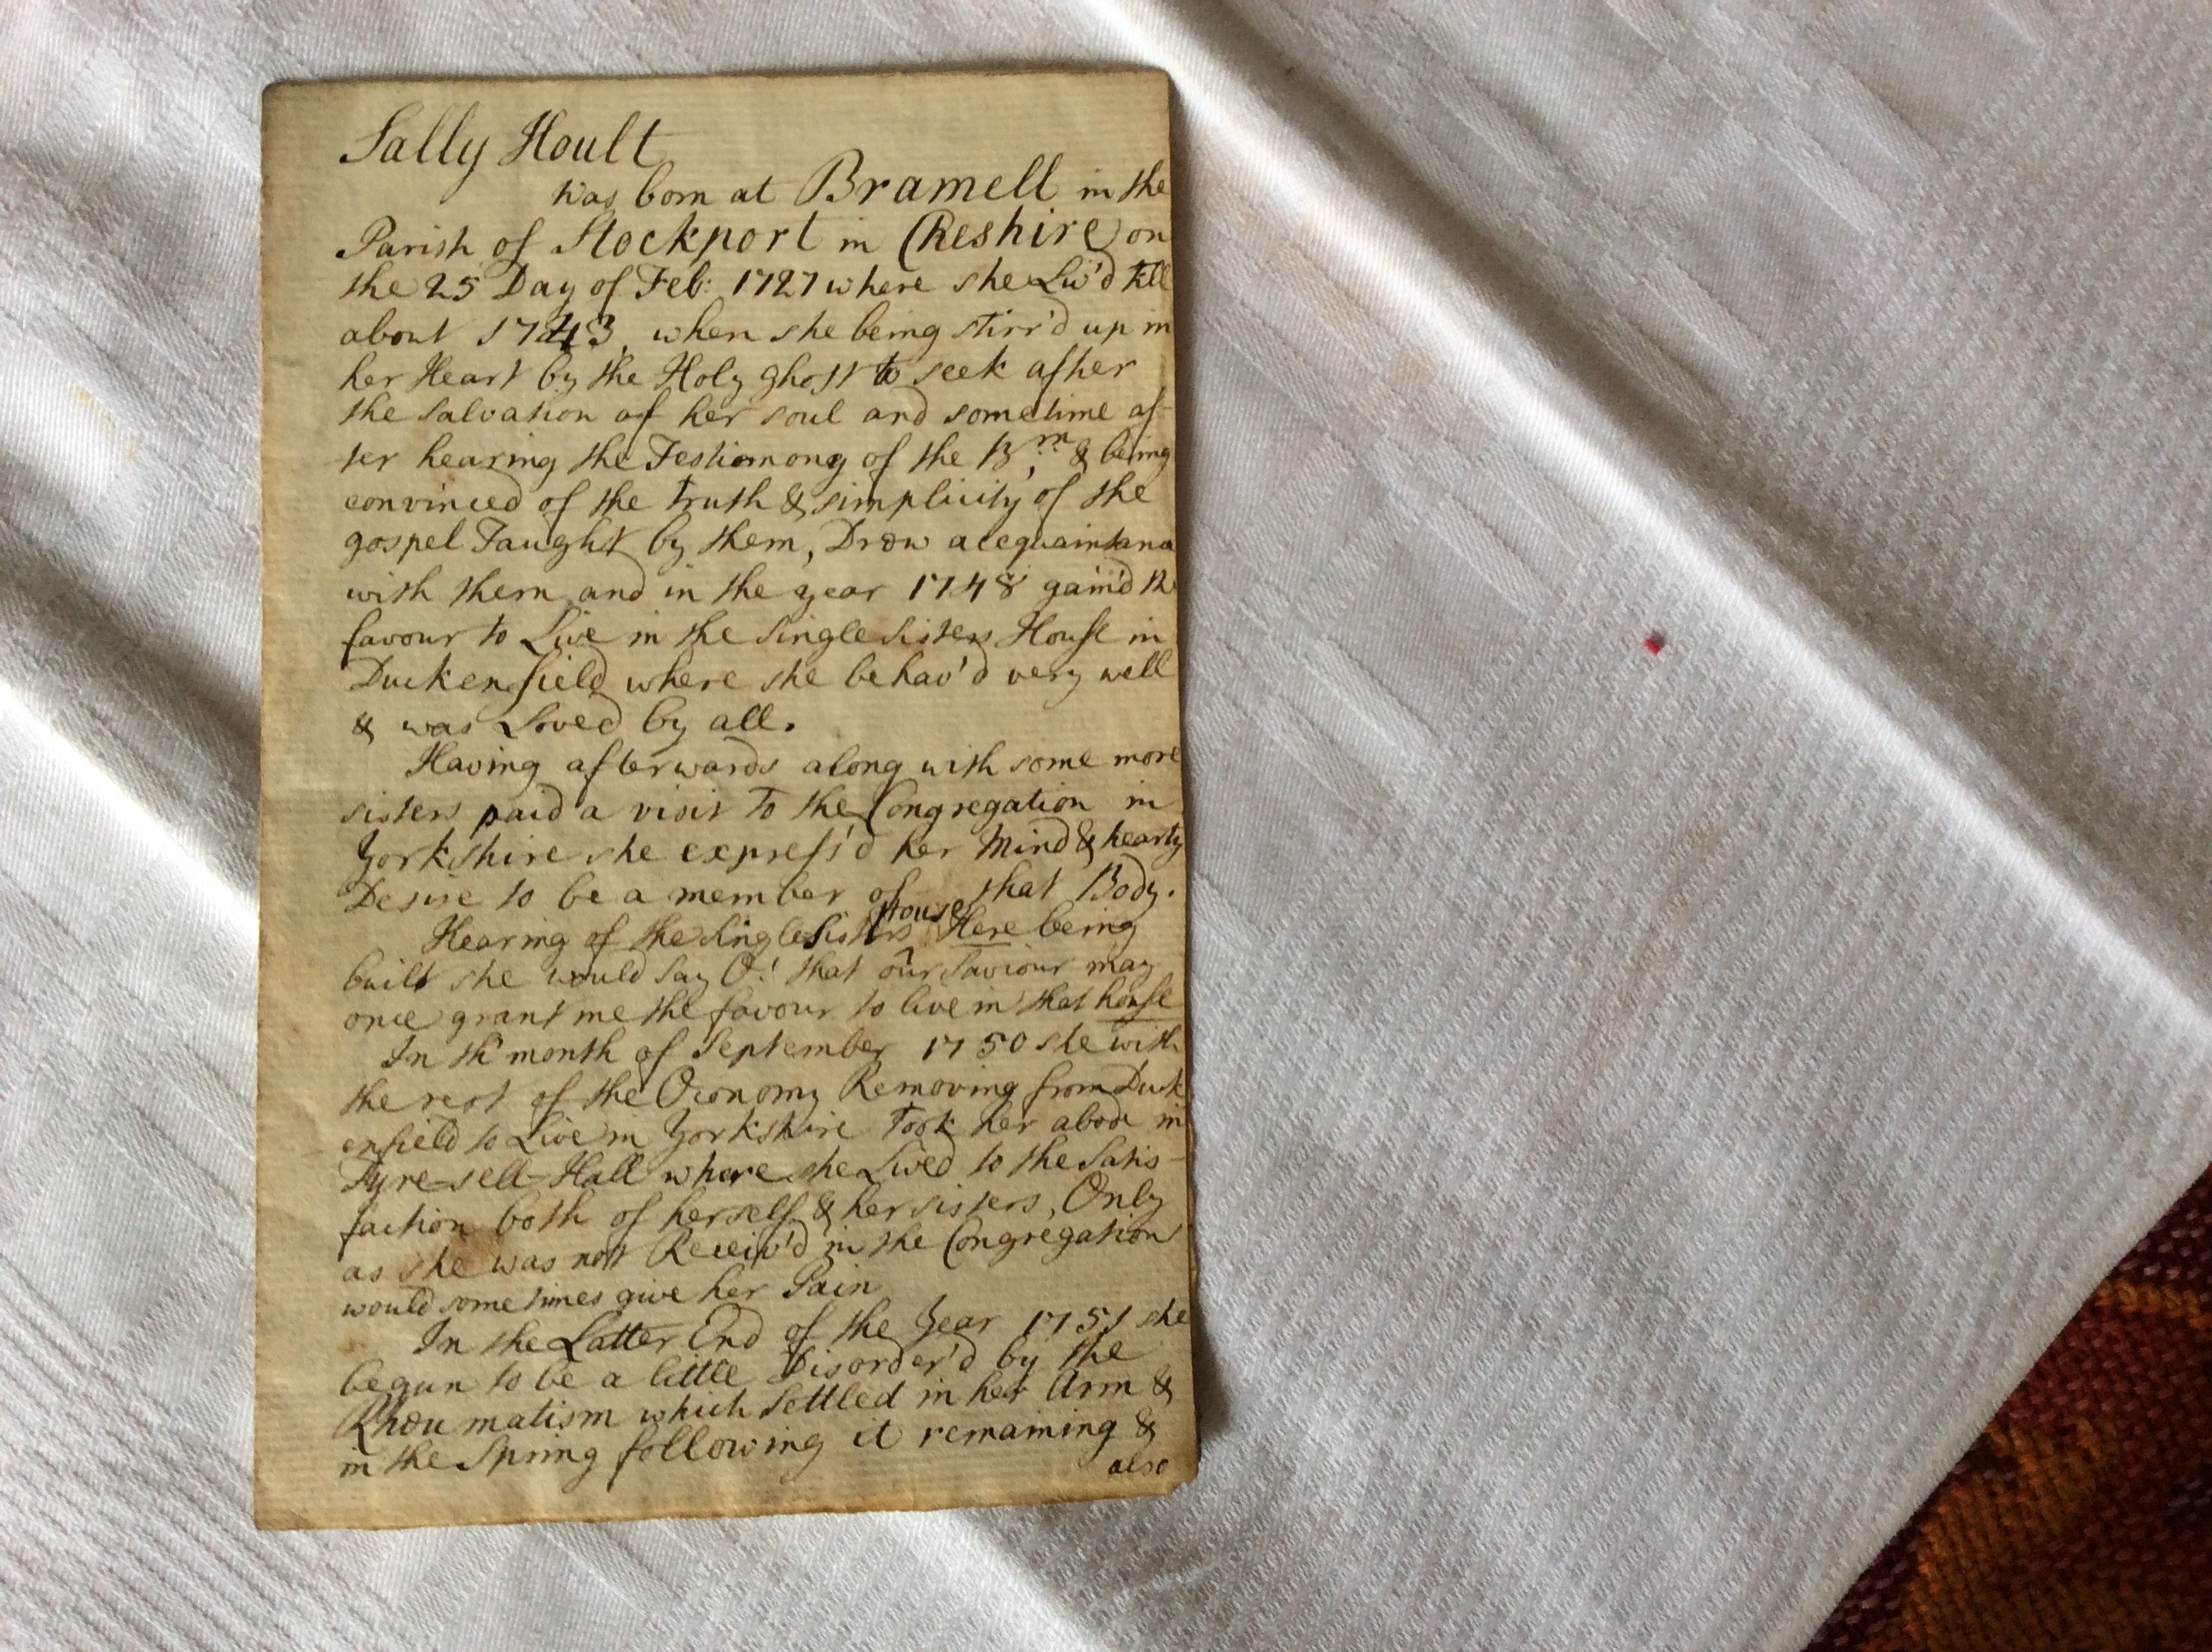 Sally Hoult
was born at Bramell in the
Parish of Stockport in Cheshire on
the 25 Day of Feb: 1727 where she Liv'd till
about 1743, when she being stirr'd up in
her Heart by the Holy ghost to seek after
the Salvation of her soul and sometime af-
ter hearing the Testiomony of the Brn. & being
convinced of the truth & simplicity of the
gospel Taught by them, Drew acequaintance
with them and in the year 1748 gain'd the
favour to Live in the Single Sisters House in
Duckenfield where she behav'd very well
& was Loved by all.
Having afterwards along with some more
sisters paid a visit to the Congregation in
Yorkshire she express'd her Mind & hearty
Desire to be a member of that Body.
Hearing of the Single Sisters House Here being
built she would Say O! that our Saviour may
once grant me the favour to live in that house
In th month of September 1750 she with
the rest of the Oconomy Removing from Duck
enfield to Live in Yorkshire Took her abode in
Tyre-sell-Hall where she Lived to the Satis-
faction both of herself & her sisters, Only
as she was not Receiv'd in the Congregation
would sometimes give her Pain
In the Latter End of the Year 1751 she
begun to be a little Disorder'd by the
Rheumatism which Settled in her Arm &
in the Spring following it remaining &
also